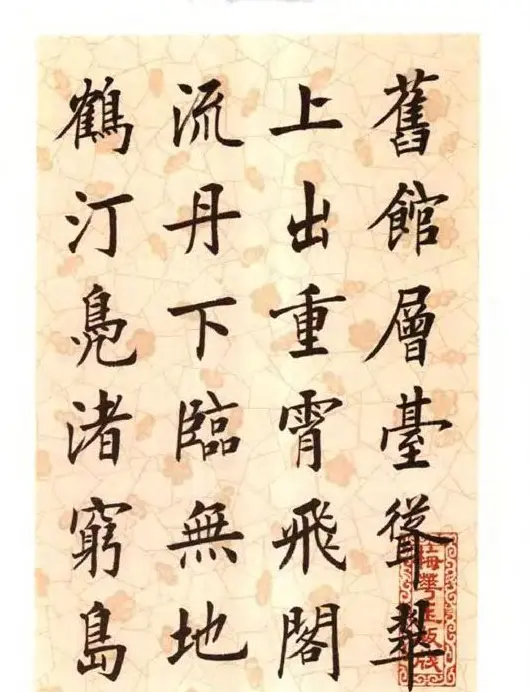 舊館層臺聳翠
上出重霄飛閣
流丹下臨無地
鶴汀鳧渚窮島